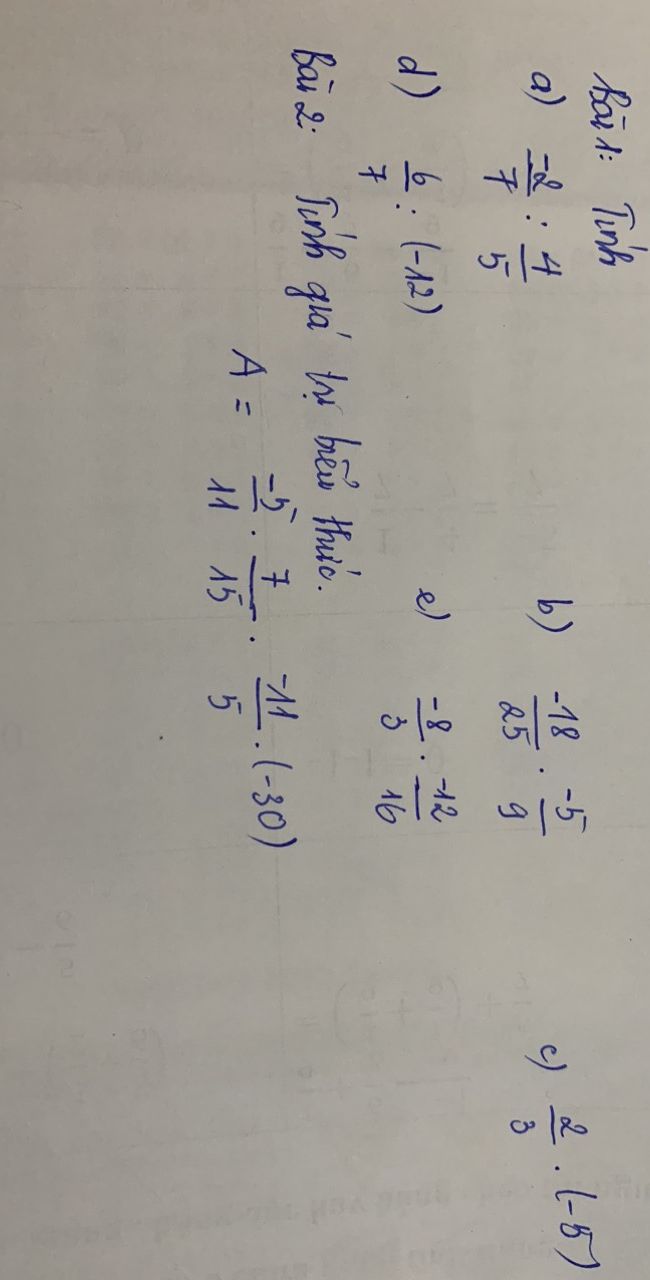 Bài 1: Tính
a) -2/7 : 4/5 b) -18/25 . -5/9 c) 2/3 . (-5)
d) 6/7 : (-12) e) -8/3 . -12/16
Bài 2: Tính giá trị biểu thức.
A = -5/11 . 7/15 . -11/5 . (-30)